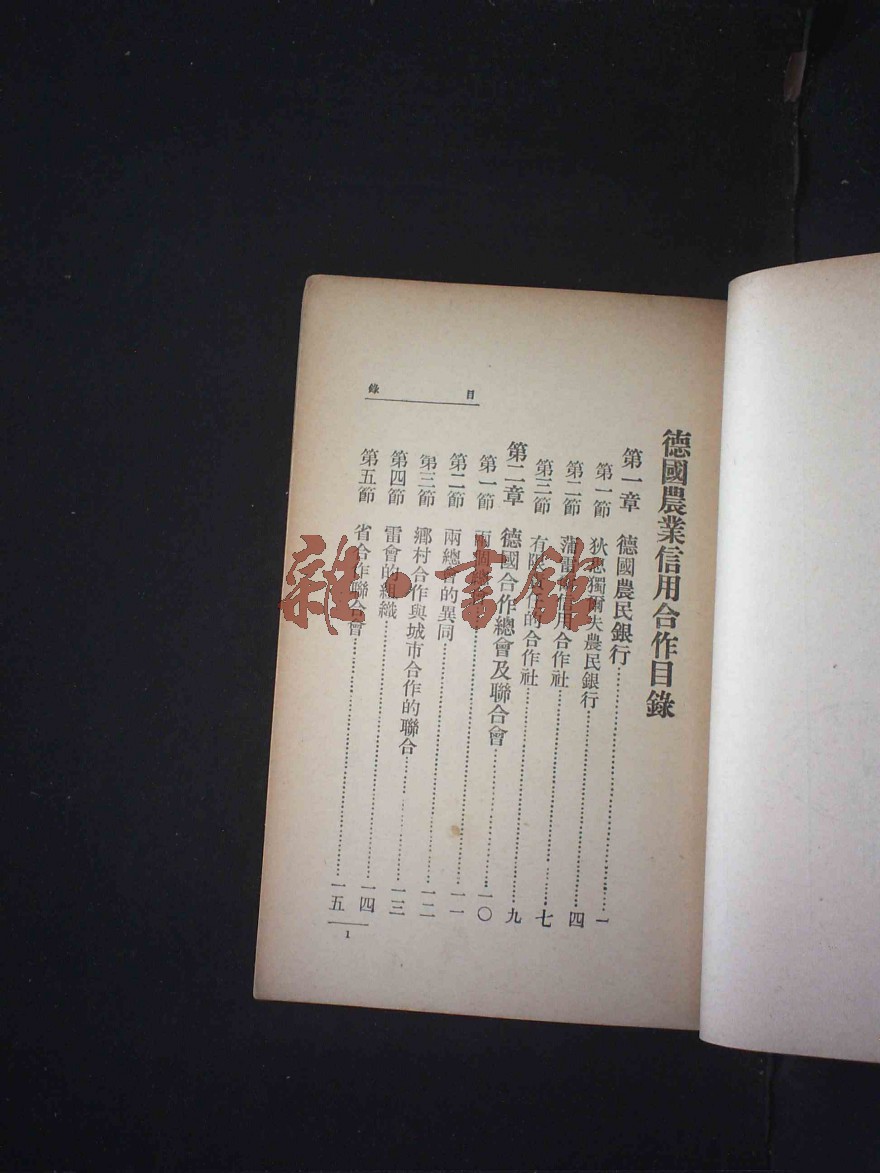 德國農業信用合作目錄
第一章 德國農民銀行……一
第一節 狄獨爾夫農民銀行……四
第二節 蒲信用合作社……七
第三節 有限責任的合作社……九
第二章 德國合作總會及聯合會……一〇
第一節 兩個……一一
第二節 兩總會的異同……一二
第三節 鄉村合作與城市合作的聯合……一三
第四節 雷會的組織……一四
第五節 省合作聯合會……一五
目錄
1
雜·書館